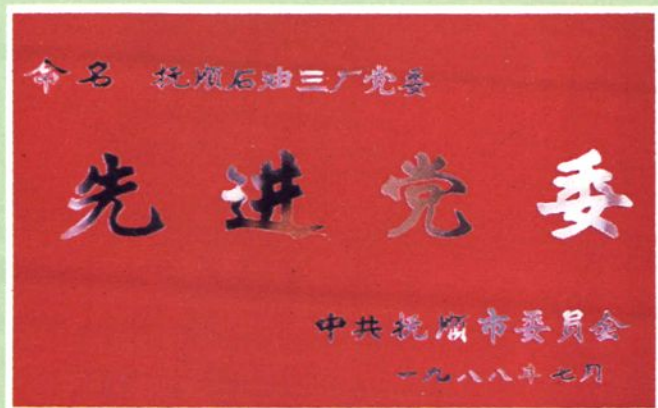 命名 抚顺石油三厂党委
先进党委
中共抚顺市委员会
一九八八年七月